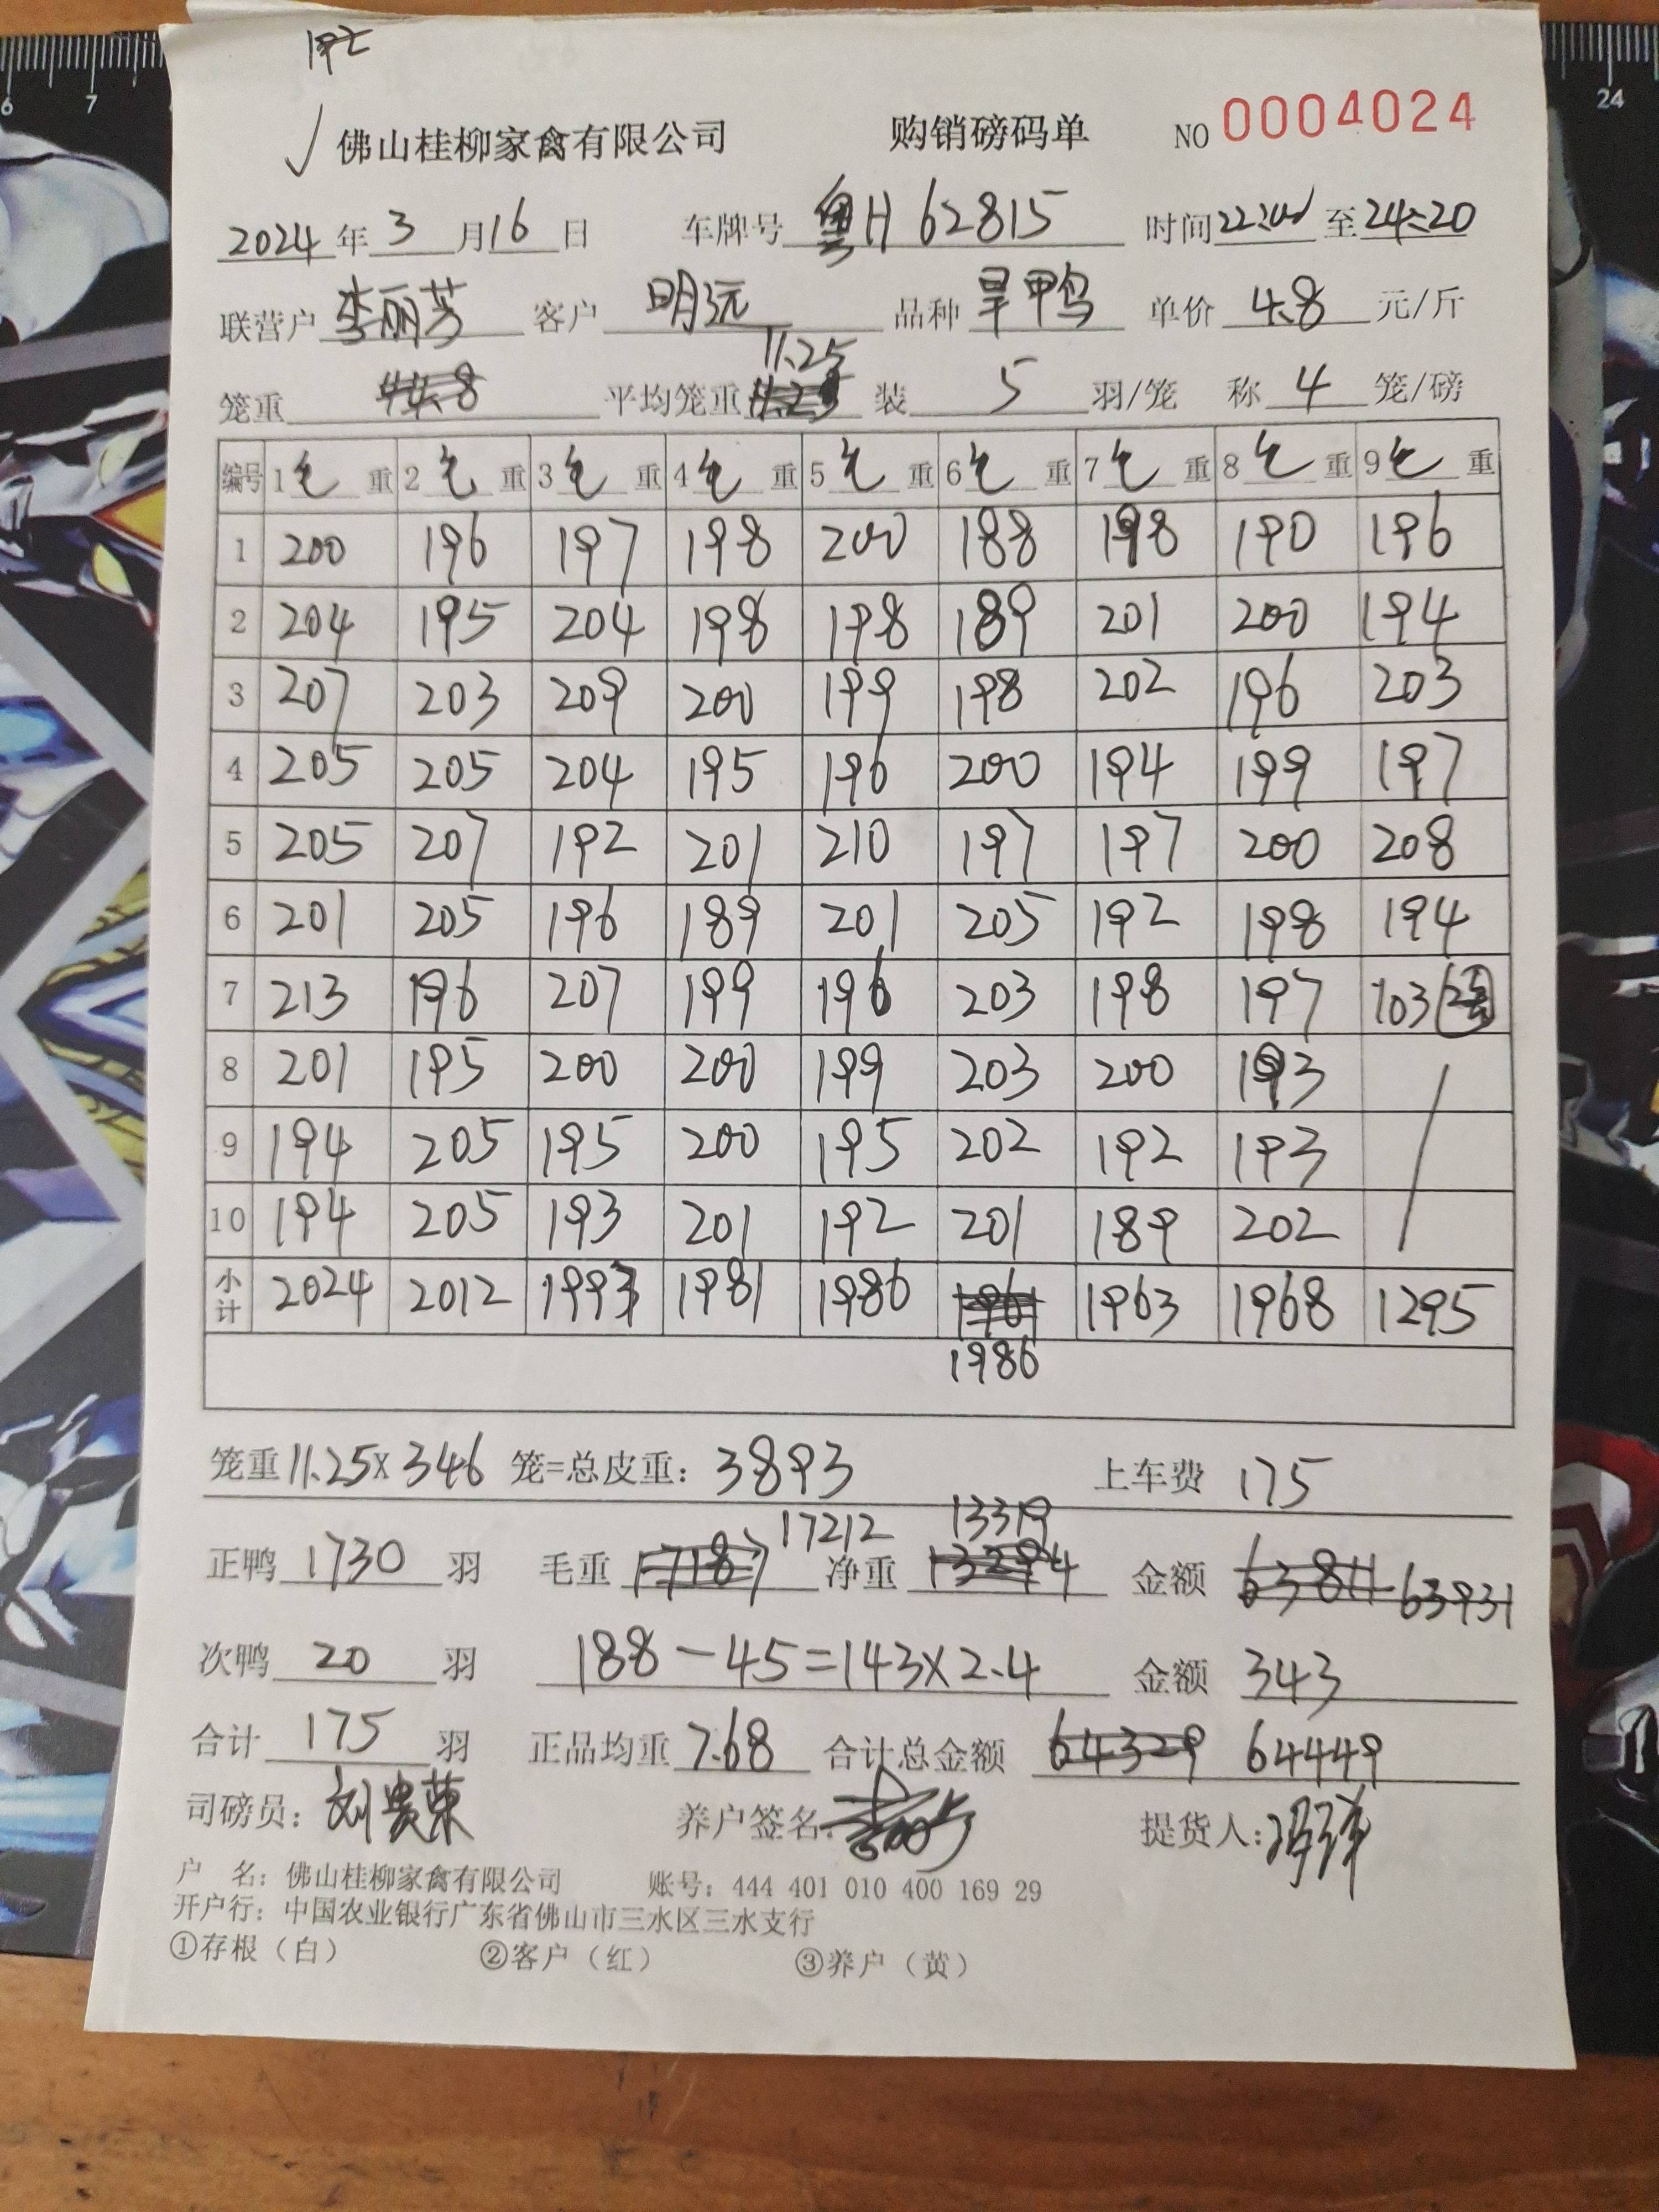 佛山桂柳家禽有限公司 购销磅码单 NO 0004024
2024年3月16日 车牌号 粤H 62815 时间 至24:20
联营户 李丽芳 客户 明远 品种 旱鸭 单价 4.8 元/斤
11.25
笼重 44.8 平均笼重 装 5 羽/笼 称 4 笼/磅
编号 1毛重 2毛重 3毛重 4毛重 5毛重 6毛重 7毛重 8毛重 9毛重
1 200 196 197 198 200 188 198 190 196
2 204 195 204 198 198 189 201 200 194
3 207 203 209 200 199 198 202 196 203
4 205 205 204 195 196 200 194 199 197
5 205 207 192 201 210 197 197 200 208
6 201 205 196 189 201 205 192 198 194
7 213 196 207 199 196 203 198 197 103
8 201 195 200 200 199 203 200 193
9 194 205 195 200 195 202 192 193
10 194 205 193 201 192 201 189 202
小计 2024 2012 1997 1981 1986 1961 1963 1968 1295
1986
笼重11.25×346 笼=总皮重:3893 上车费 175
17212 13319
正鸭 1730 羽 毛重 17187 净重 13294 金额 63811 63931
次鸭 20 羽 188-45=143×2.4 金额 343
合计 175 羽 正品均重 7.68 合计总金额 64329 64449
司磅员:刘贵荣 养户签名: 提货人:
户 名:佛山桂柳家禽有限公司 账号:444 401 010 400 169 29
开户行:中国农业银行广东省佛山市三水区三水支行
①存根(白) ②客户(红) ③养户(黄)